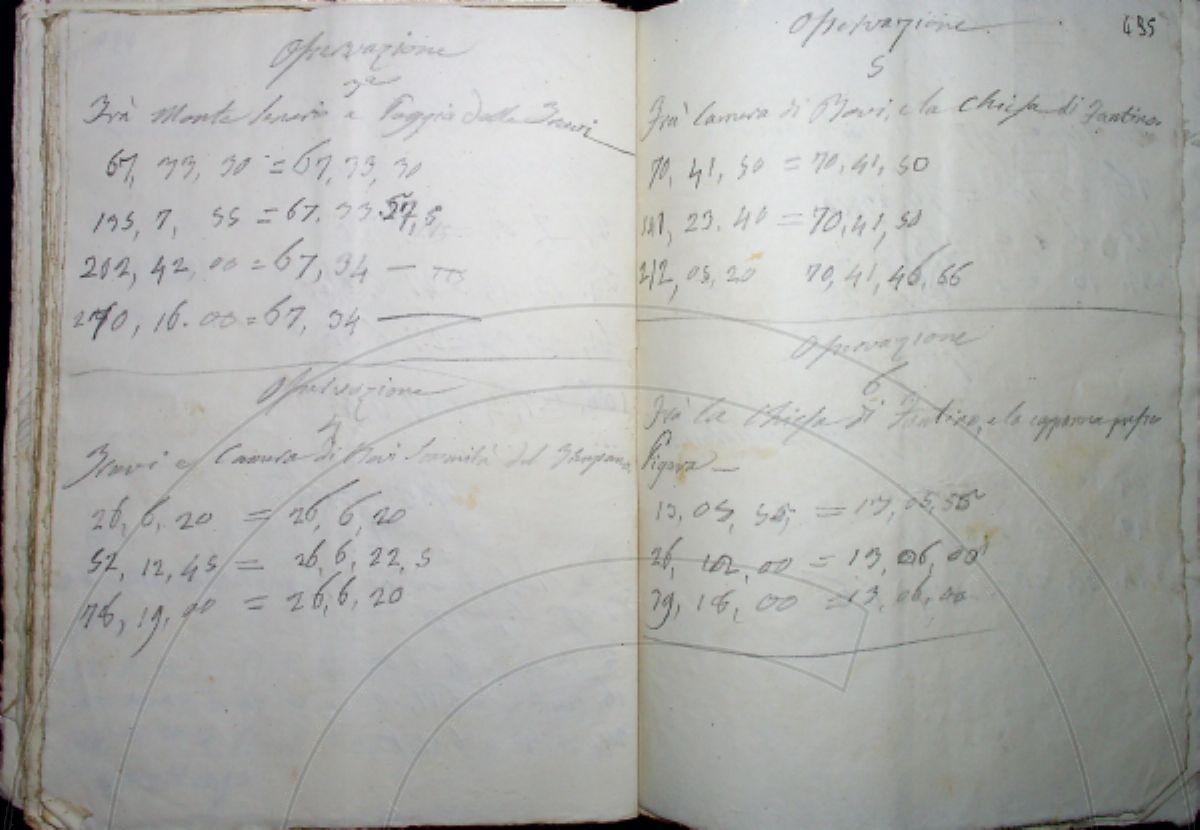 Osservazione
3a
Frà Monte e Poggio delle
67, 33, 30 = 67, 33, 30
135, 7, 55 = 67. 33. 57, 5
202, 42, 00 = 67, 34 —
270, 16. 00 = 67, 34 —
Osservazione
4
e Camera di Bovi Sommità del
26, 6, 20 = 26, 6, 20
52, 12, 45 = 26, 6, 22, 5
78, 19, 00 = 26, 6, 20
495
Osservazione
5
Frà Camera di Bovi, e la Chiesa di Fantino
70, 41, 50 = 70, 41, 50
141, 23. 40 = 70, 41, 50
212, 05, 20 70, 41, 46, 66
Osservazione
6
Frà la Chiesa di Fantino, e la capanna presso
Pigara —
13, 05, 55, = 13, 05, 55
26, 12, 00 = 13, 06, 00
39, 18, 00 = 13, 06, 00